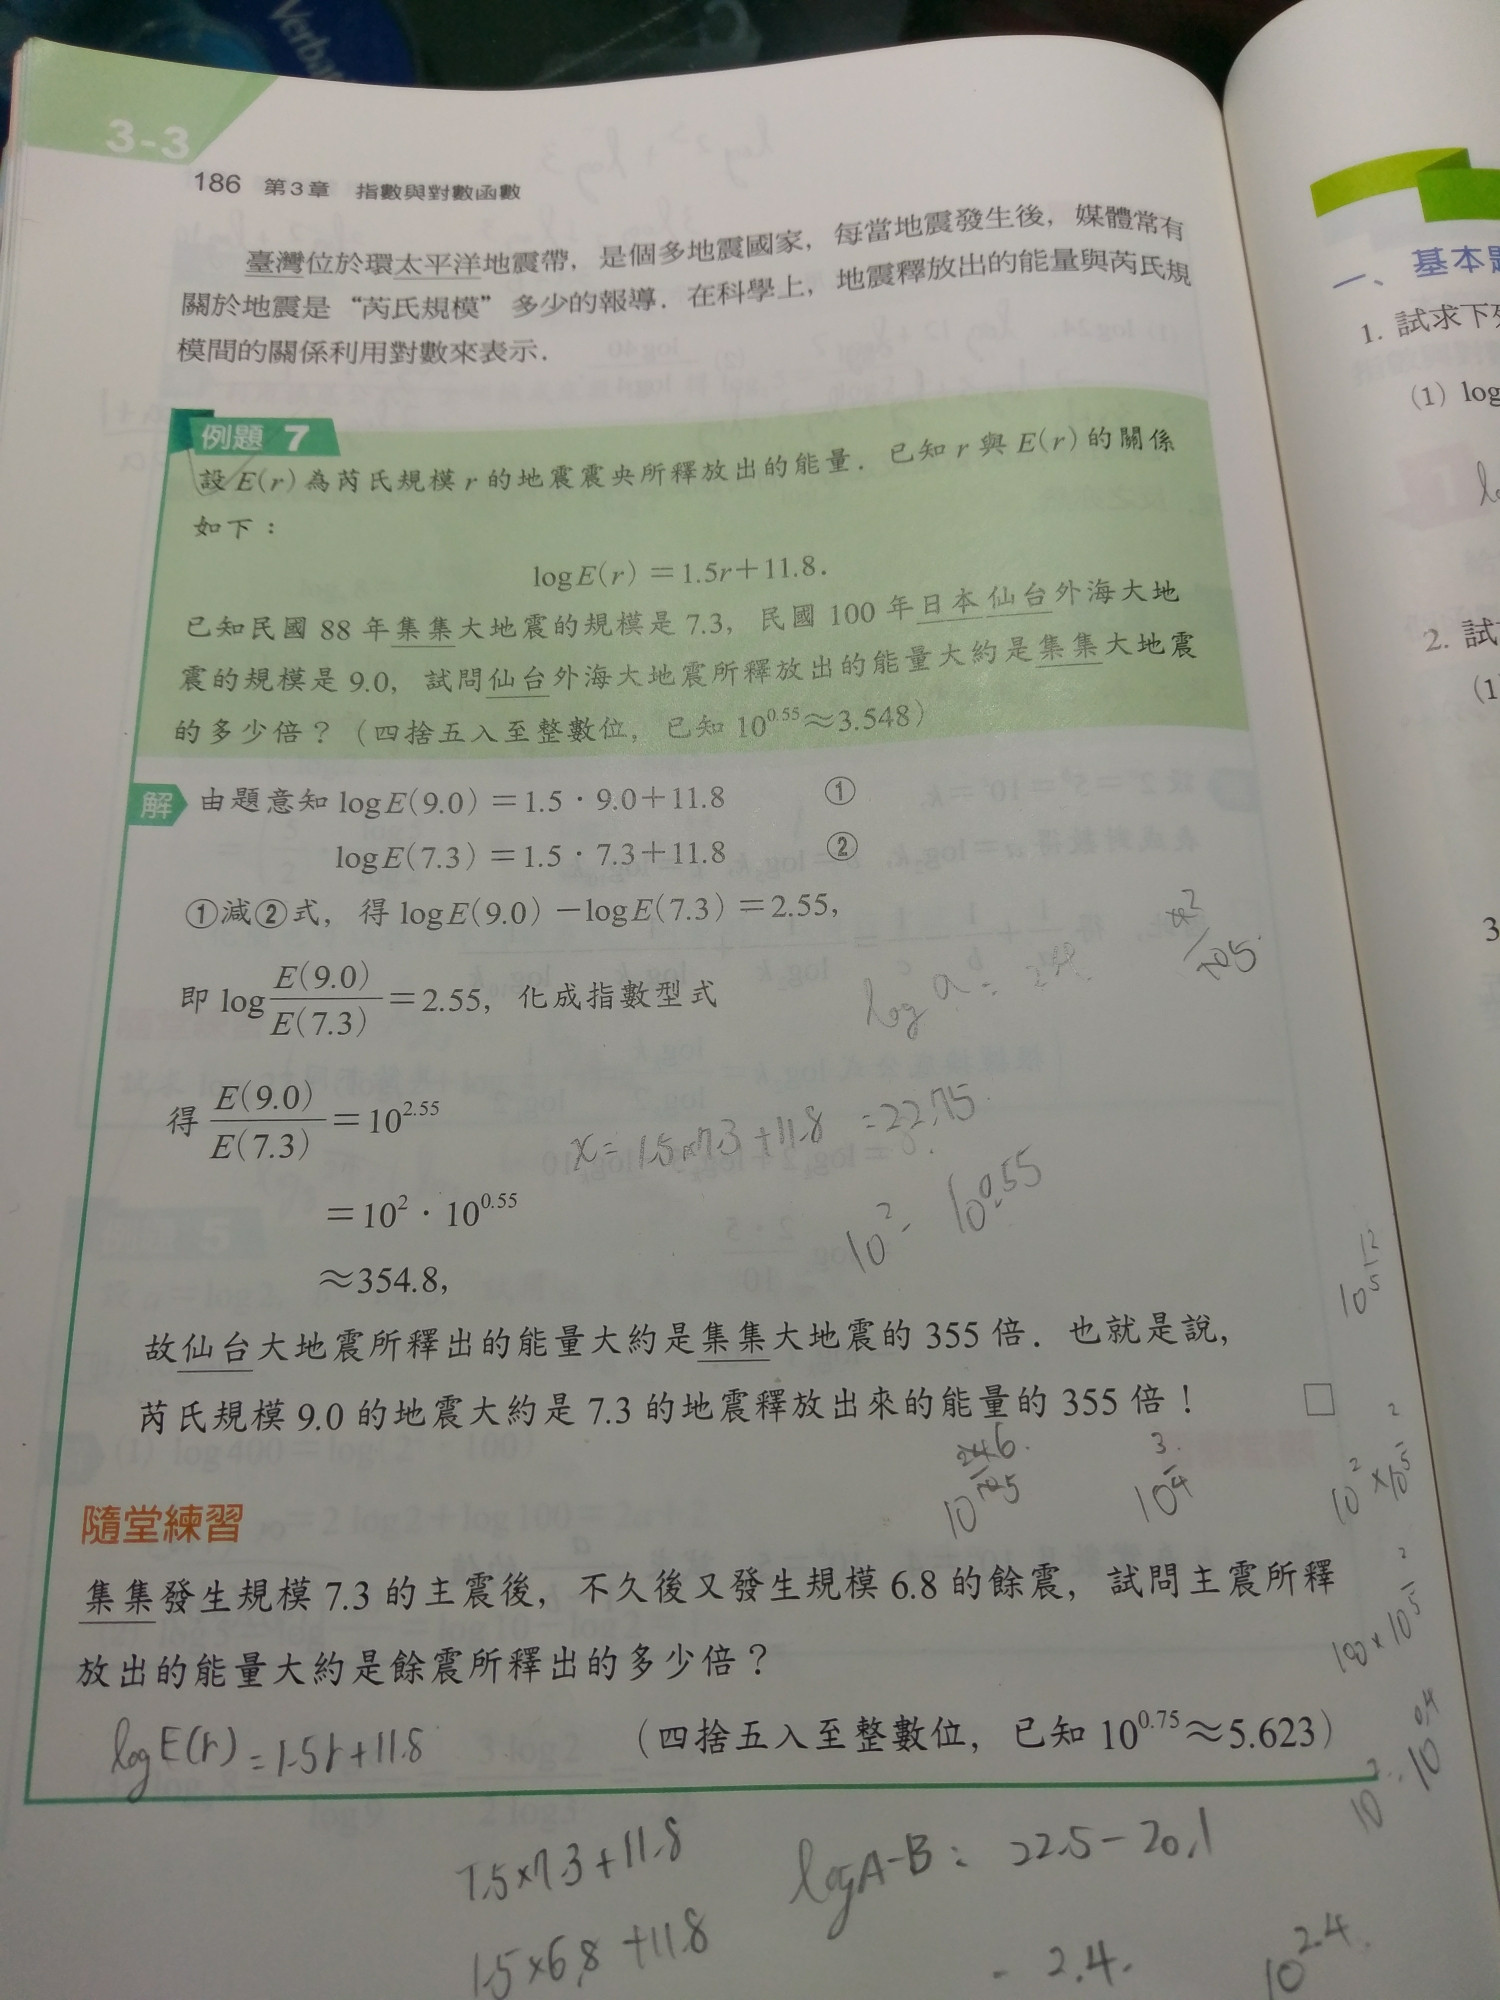 Verba
3-3
186 第3章 指數與對數函數
臺灣位於環太平洋地震帶，是個多地震國家，每當地震發生後，媒體常有
關於地震是“芮氏規模”多少的報導．在科學上，地震釋放出的能量與芮氏規
模間的關係利用對數來表示．
例題 7
設 E(r) 為芮氏規模 r 的地震震央所釋放出的能量．已知 r 與 E(r) 的關係
如下：
log E(r) = 1.5r + 11.8．
已知民國 88 年集集大地震的規模是 7.3，民國 100 年日本仙台外海大地
震的規模是 9.0，試問仙台外海大地震所釋放出的能量大約是集集大地震
的多少倍？（四捨五入至整數位，已知 10^0.55 ≈ 3.548）
解 由題意知 log E(9.0) = 1.5 · 9.0 + 11.8 ①
log E(7.3) = 1.5 · 7.3 + 11.8 ②
①減②式，得 log E(9.0) − log E(7.3) = 2.55，
即 log E(9.0)/E(7.3) = 2.55，化成指數型式
log a =
得 E(9.0)/E(7.3) = 10^2.55
x = 1.5×7.3+11.8 = 22.75
= 10^2 · 10^0.55
10^2 · 10^0.55
≈ 354.8，
10^12/5
故仙台大地震所釋出的能量大約是集集大地震的 355 倍．也就是說，
芮氏規模 9.0 的地震大約是 7.3 的地震釋放出來的能量的 355 倍！ □
10^3/4
10^2 × 10^2/5
隨堂練習
集集發生規模 7.3 的主震後，不久後又發生規模 6.8 的餘震，試問主震所釋
放出的能量大約是餘震所釋出的多少倍？
100 × 10^2/5
（四捨五入至整數位，已知 10^0.75 ≈ 5.623）
log E(r) = 1.5r + 11.8
10^2 · 10^0.4
1.5×7.3+11.8
log A-B = 22.5-20.1
1.5×6.8+11.8
= 2.4. 10^2.4
一、基本題
1. 試求下列
(1) log
2. 試
(1
3